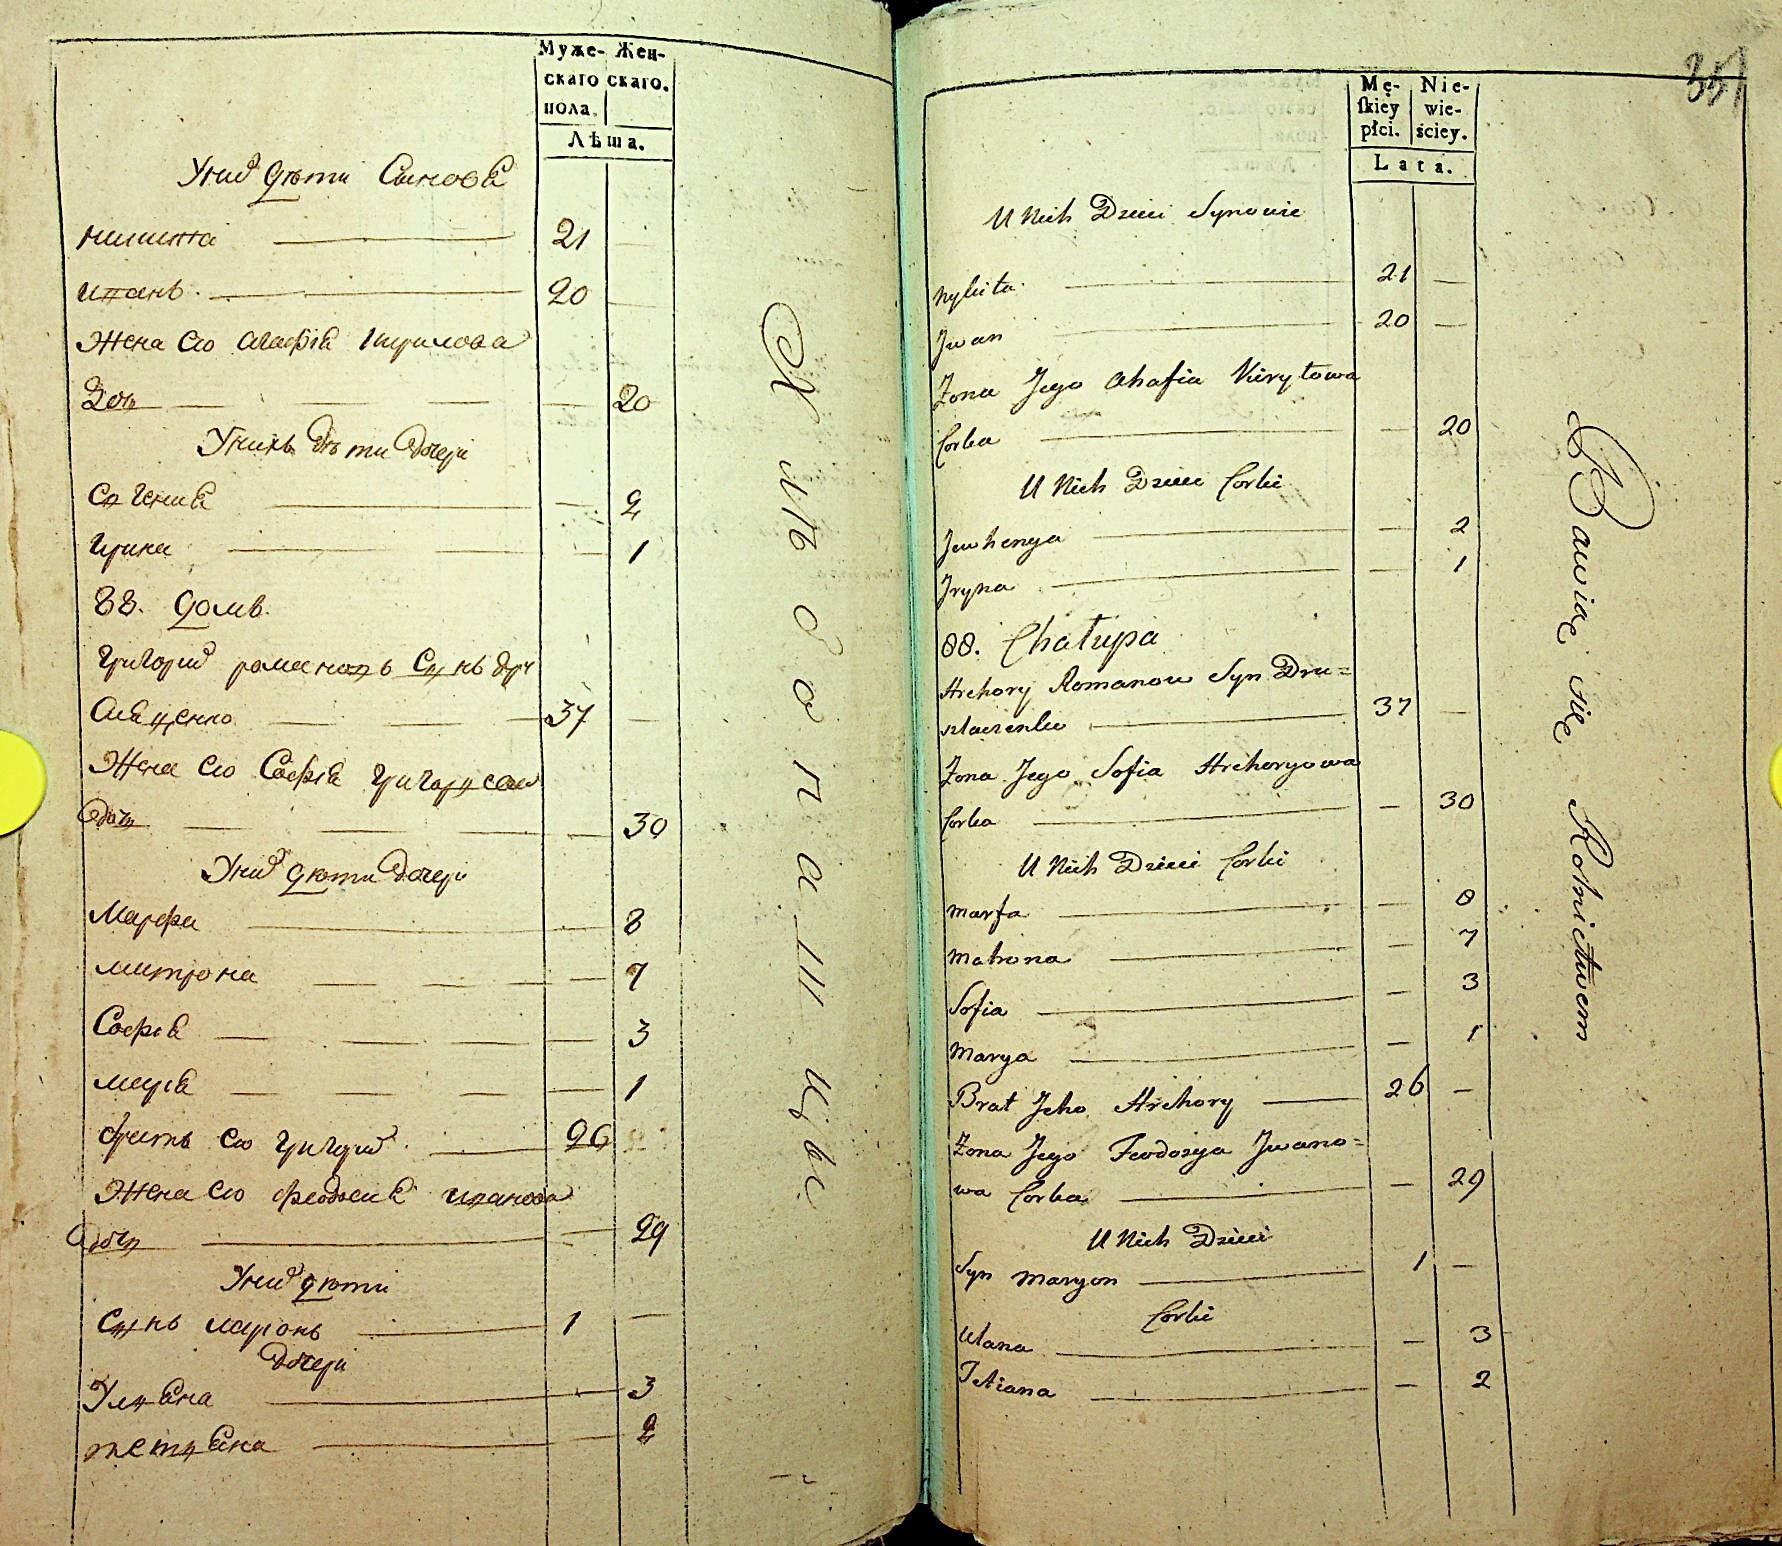 Муже- Жен-
скаго скаго.
пола.
Лѣта.
У них дѣти Синовя
никита 21
иванъ 20
Жена Его агафія Кирилова
Дочь 20
У нихъ дѣти дочери
Евгения 2
Ирина 1
88. домъ.
Григорий романовъ Сынъ дру
37
Жена Его Софія Григориева
дочь 30
У них дѣти дочери
Марфа 8
митрона 7
Софія 3
марія 1
братъ Его Григорий 26
Жена Его феодосия иванова
дочь 29
У них дѣти
Сынъ марионъ 1
дочери
Ульяна 3
тетьяна 2
Хлѣбопашцы
351
Mę- Nie-
skiey wie-
płci. ściey.
Lata.
U Nich Dzieci Synowie
Nykita 21
Jwan 20
Żona Jego Ahafia Kiryłowa
Corka 20
U Nich Dzieci Corki
Jewhenya 2
Jryna 1
88. Chałupa
Hrehory Romanow Syn Dru=
37
Żona Jego Sofia Hrehoryowa
Corka 30
U Nich Dzieci Corki
Marfa 8
Matrona 7
Sofia 3
Marya 1
Brat Jeho Hrehory 26
Żona Jego Feodosya Jwano=
wa Corka 29
U Nich Dzieci
Syn Maryon 1
Corki
Ulana 3
Tetiana 2
Bawią się Rolnictwem